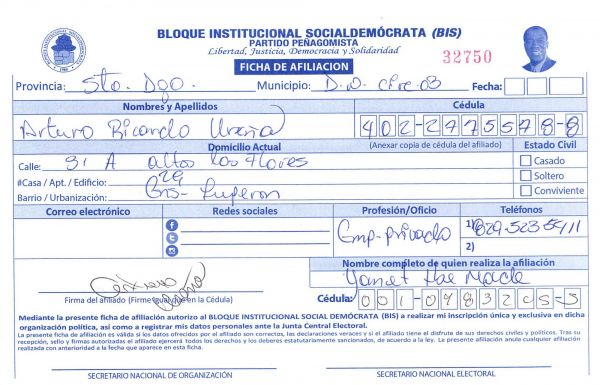 BLOQUE INSTITUCIONAL SOCIALDEMÓCRATA (BIS)
PARTIDO PEÑAGOMISTA
Libertad, Justicia, Democracia y Solidaridad
32750
FICHA DE AFILIACION
Provincia: Sto. Dgo. Municipio: D.N. Circ. 03 Fecha:
Nombres y Apellidos Cédula
Arturo Ricardo Ureña 402-2775578-8
Domicilio Actual (Anexar copia de cédula del afiliado) Estado Civil
Calle: 31 A altos las flores Casado
#Casa / Apt. / Edificio: 29 Soltero
Barrio / Urbanización: Cris- Luperon Conviviente
Correo electrónico Redes sociales Profesión/Oficio Teléfonos
Emp-Privado 1) 829-523-5411
2)
Nombre completo de quien realiza la afiliación
Yamet
Firma del afiliado (Firme igual que en la Cédula) Cédula: 001-0783205-5
Mediante la presente ficha de afiliación autorizo al BLOQUE INSTITUCIONAL SOCIAL DEMÓCRATA (BIS) a realizar mi inscripción única y exclusiva en dicha
organización política, así como a registrar mis datos personales ante la Junta Central Electoral.
La presente ficha de afiliación es válida si los datos ofrecidos por el afiliado son correctos, las declaraciones veraces y si el afiliado tiene el disfrute de sus derechos civiles y políticos. Tras su
recepción, sello y firmas autorizadas el afiliado ejercerá todos los derechos y los deberes estatutariamente establecidos, de acuerdo a la ley. La presente afiliación anula cualquier afiliación
realizada con anterioridad a la fecha que aparece en esta ficha.
SECRETARIO NACIONAL DE ORGANIZACIÓN SECRETARIO NACIONAL ELECTORAL